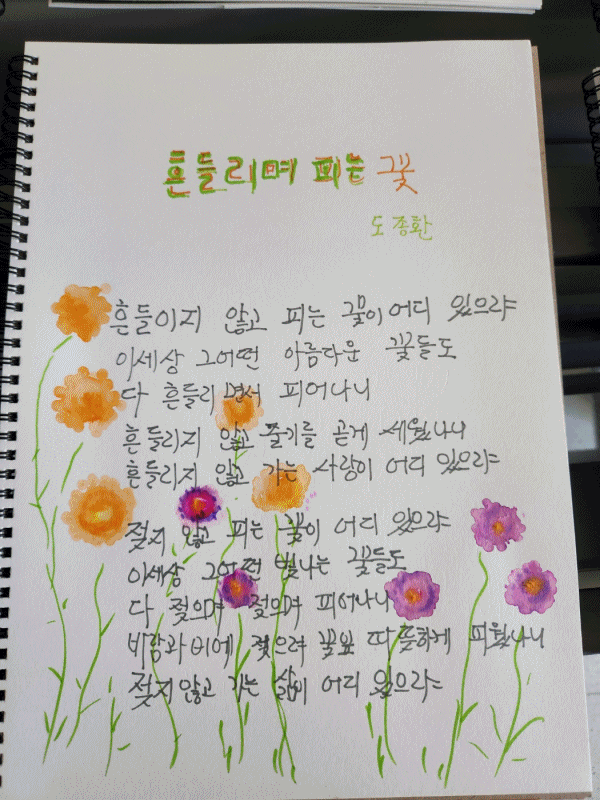 흔들리며 피는 꽃
도종환
흔들이지 않고 피는 꽃이 어디 있으랴
이세상 그어떤 아름다운 꽃들도
다 흔들리면서 피어나니
흔들리지 않고 줄기를 곧게 세웠나니
흔들리지 않고 가는 사랑이 어디 있으랴
젖지 않고 피는 꽃이 어디 있으랴
이세상 그어떤 빛나는 꽃들도
다 젖으며 젖으며 피어나니
바람과 비에 젖으려 꽃잎 따뜻하게 피웠나니
젖지않고 가는 삶이 어디 있으랴